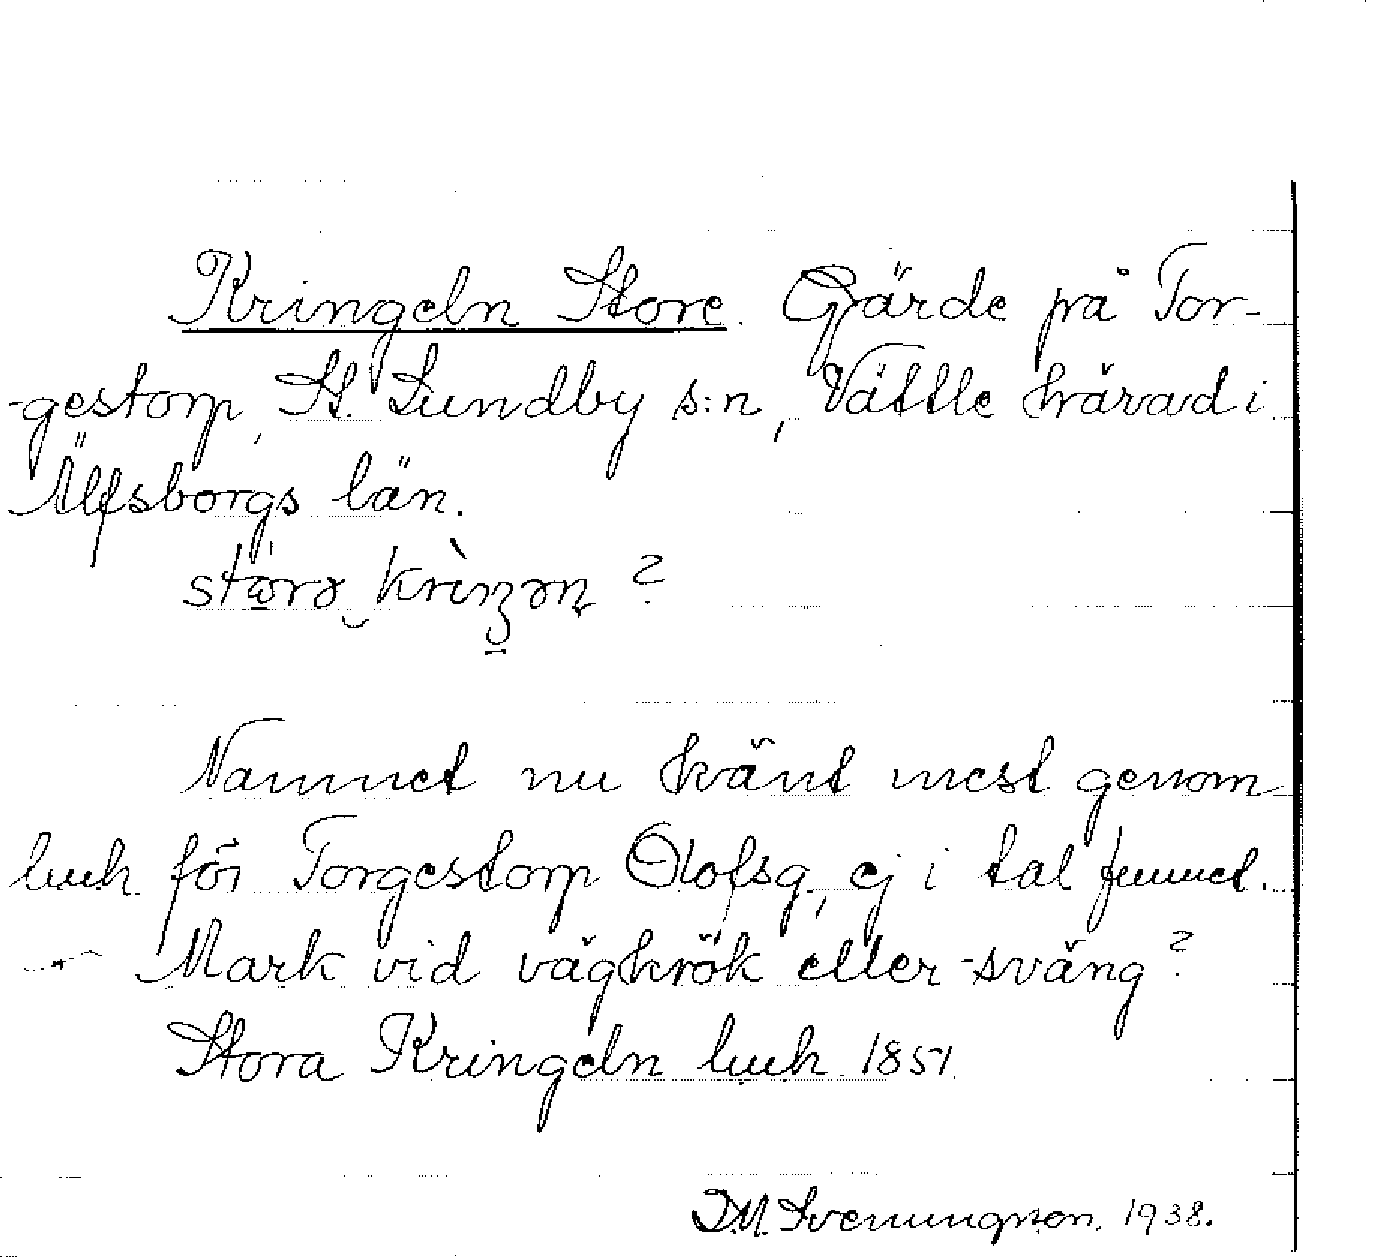 Kringeln Store. Gärde på Tor-
-gestorp, St. Lundby s:n, Vättle härad i
Älfsborgs län.
?
Namnet nu känt mest genom
luh för Torgestorp Olofsg., ej i tal funnet.
Mark vid vägkrök eller -sväng?
Stora Kringeln luh 1851
D.M. Svenungsson. 1938.